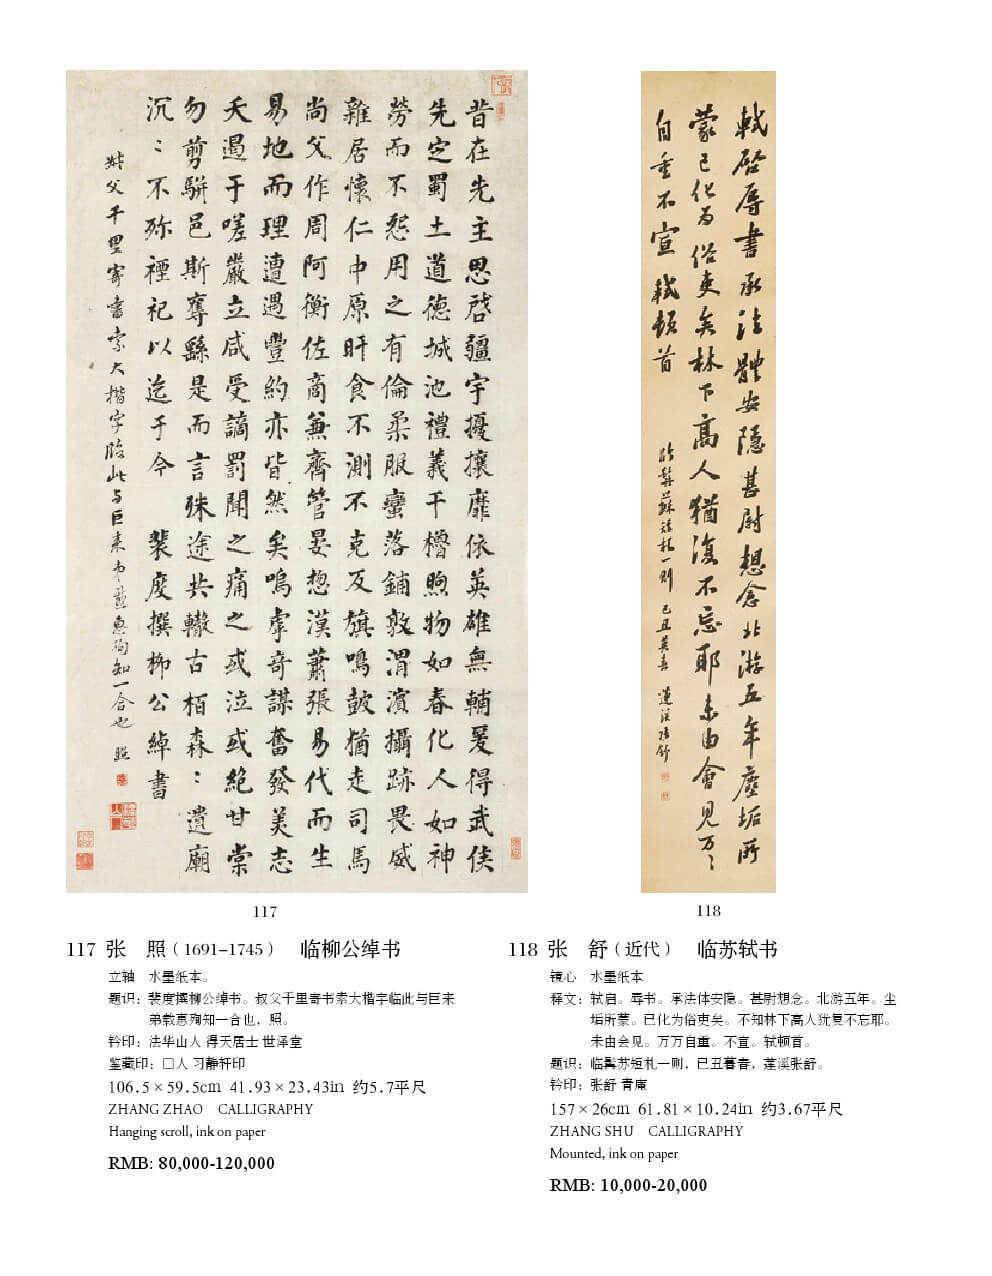 昔在先主思啓疆宇擾攘靡依英雄無輔爰得武侯
先定蜀土道德城池禮義干櫓煦物如春化人如神
勞而不怨用之有倫柔服蠻落鋪敦渭濱攝跡畏威
雜居懷仁中原旰食不測不克反旗鳴鼓猶走司馬
尚父作周阿衡佐商兼齊管晏總漢蕭張易代而生
易地而理遭遇豐約亦皆然矣嗚虖奇謀奮發美志
夭遏于嗟嚴立咸受謫罰聞之痛之或泣或絕甘棠
勿剪駢邑斯奪繇是而言殊途共轍古栢森:遺廟
沉:不殄禋祀以迄于今 裴度撰柳公綽書
叔父千里寄書索大楷字臨此与巨来弟載惠殉知一合也 照
軾啓辱書承法體安隱甚尉想念北游五年塵垢所
蒙已化為俗吏矣林下高人猶復不忘耶未由會見万〻
自重不宣軾頓首
117
118
117 张　照（1691–1745）　临柳公绰书
立轴　水墨纸本。
题识：裴度撰柳公绰书。叔父千里寄书索大楷字临此与巨来
弟载惠殉知一合也，照。
钤印：法华山人 得天居士 世泽堂
鉴藏印：□人 习静轩印
106.5×59.5cm 41.93×23.43in 约5.7平尺
ZHANG ZHAO　CALLIGRAPHY
Hanging scroll, ink on paper
RMB: 80,000-120,000
118 张　舒（近代）　临苏轼书
镜心　水墨纸本
释文：轼启。辱书。承法体安隐。甚尉想念。北游五年。尘
垢所蒙。已化为俗吏矣。不知林下高人犹复不忘耶。
未由会见。万万自重。不宣。轼顿首。
题识：临髯苏短札一则，已丑暮春，莲溪张舒。
钤印：张舒 青庵
157×26cm 61.81×10.24in 约3.67平尺
ZHANG SHU　CALLIGRAPHY
Mounted, ink on paper
RMB: 10,000-20,000